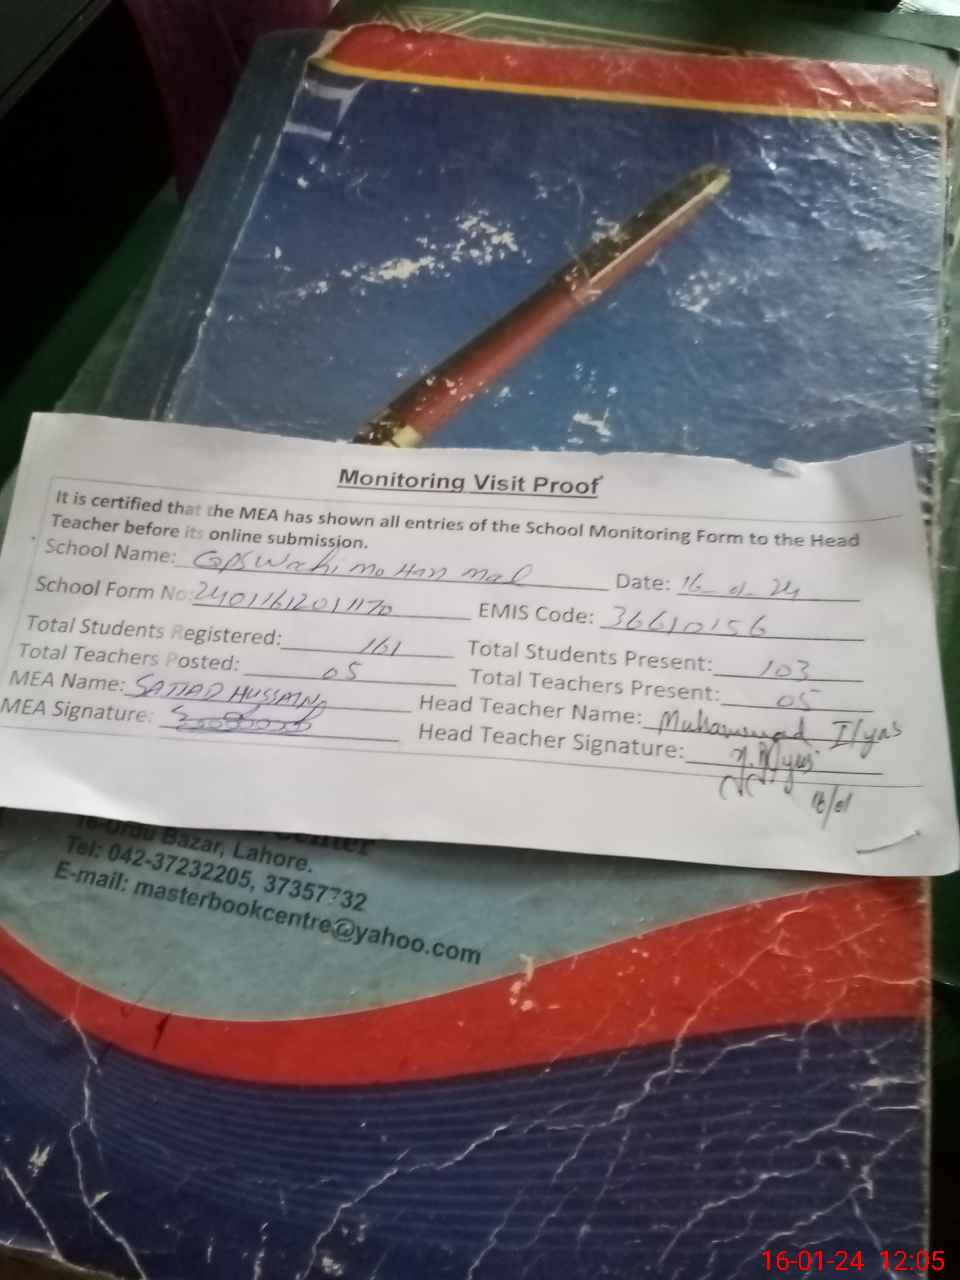 Monitoring Visit Proof
It is certified that the MEA has shown all entries of the School Monitoring Form to the Head
Teacher before its online submission.
School Name: GPS Wachi Mohan mal Date: 16-01-24
School Form No: 2401161201170 EMIS Code: 36610156
Total Students Registered: 161 Total Students Present: 103
Total Teachers Posted: 05 Total Teachers Present: 05
MEA Name: SAJJAD HUSSAIN Head Teacher Name: Muhammad Ilyas
MEA Signature: Head Teacher Signature: M.Ilyas
16/01
16-Urdu Bazar, Lahore.
Tel: 042-37232205, 37357732
E-mail: masterbookcentre@yahoo.com
16-01-24 12:05